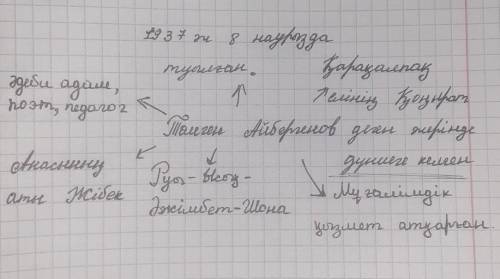 1937 ж 8 наурызда
туылған.
Әдеби адам,
поэт, педагог
Қарақалпақ
елінің Қоңырат
Төлеген Айбергенов деген жерінде
дүниеге келген
Анасының
аты Жібек
Руы-Ысық-
Әжімбет-Шона
Мұғалімдік
қызмет атқарған.